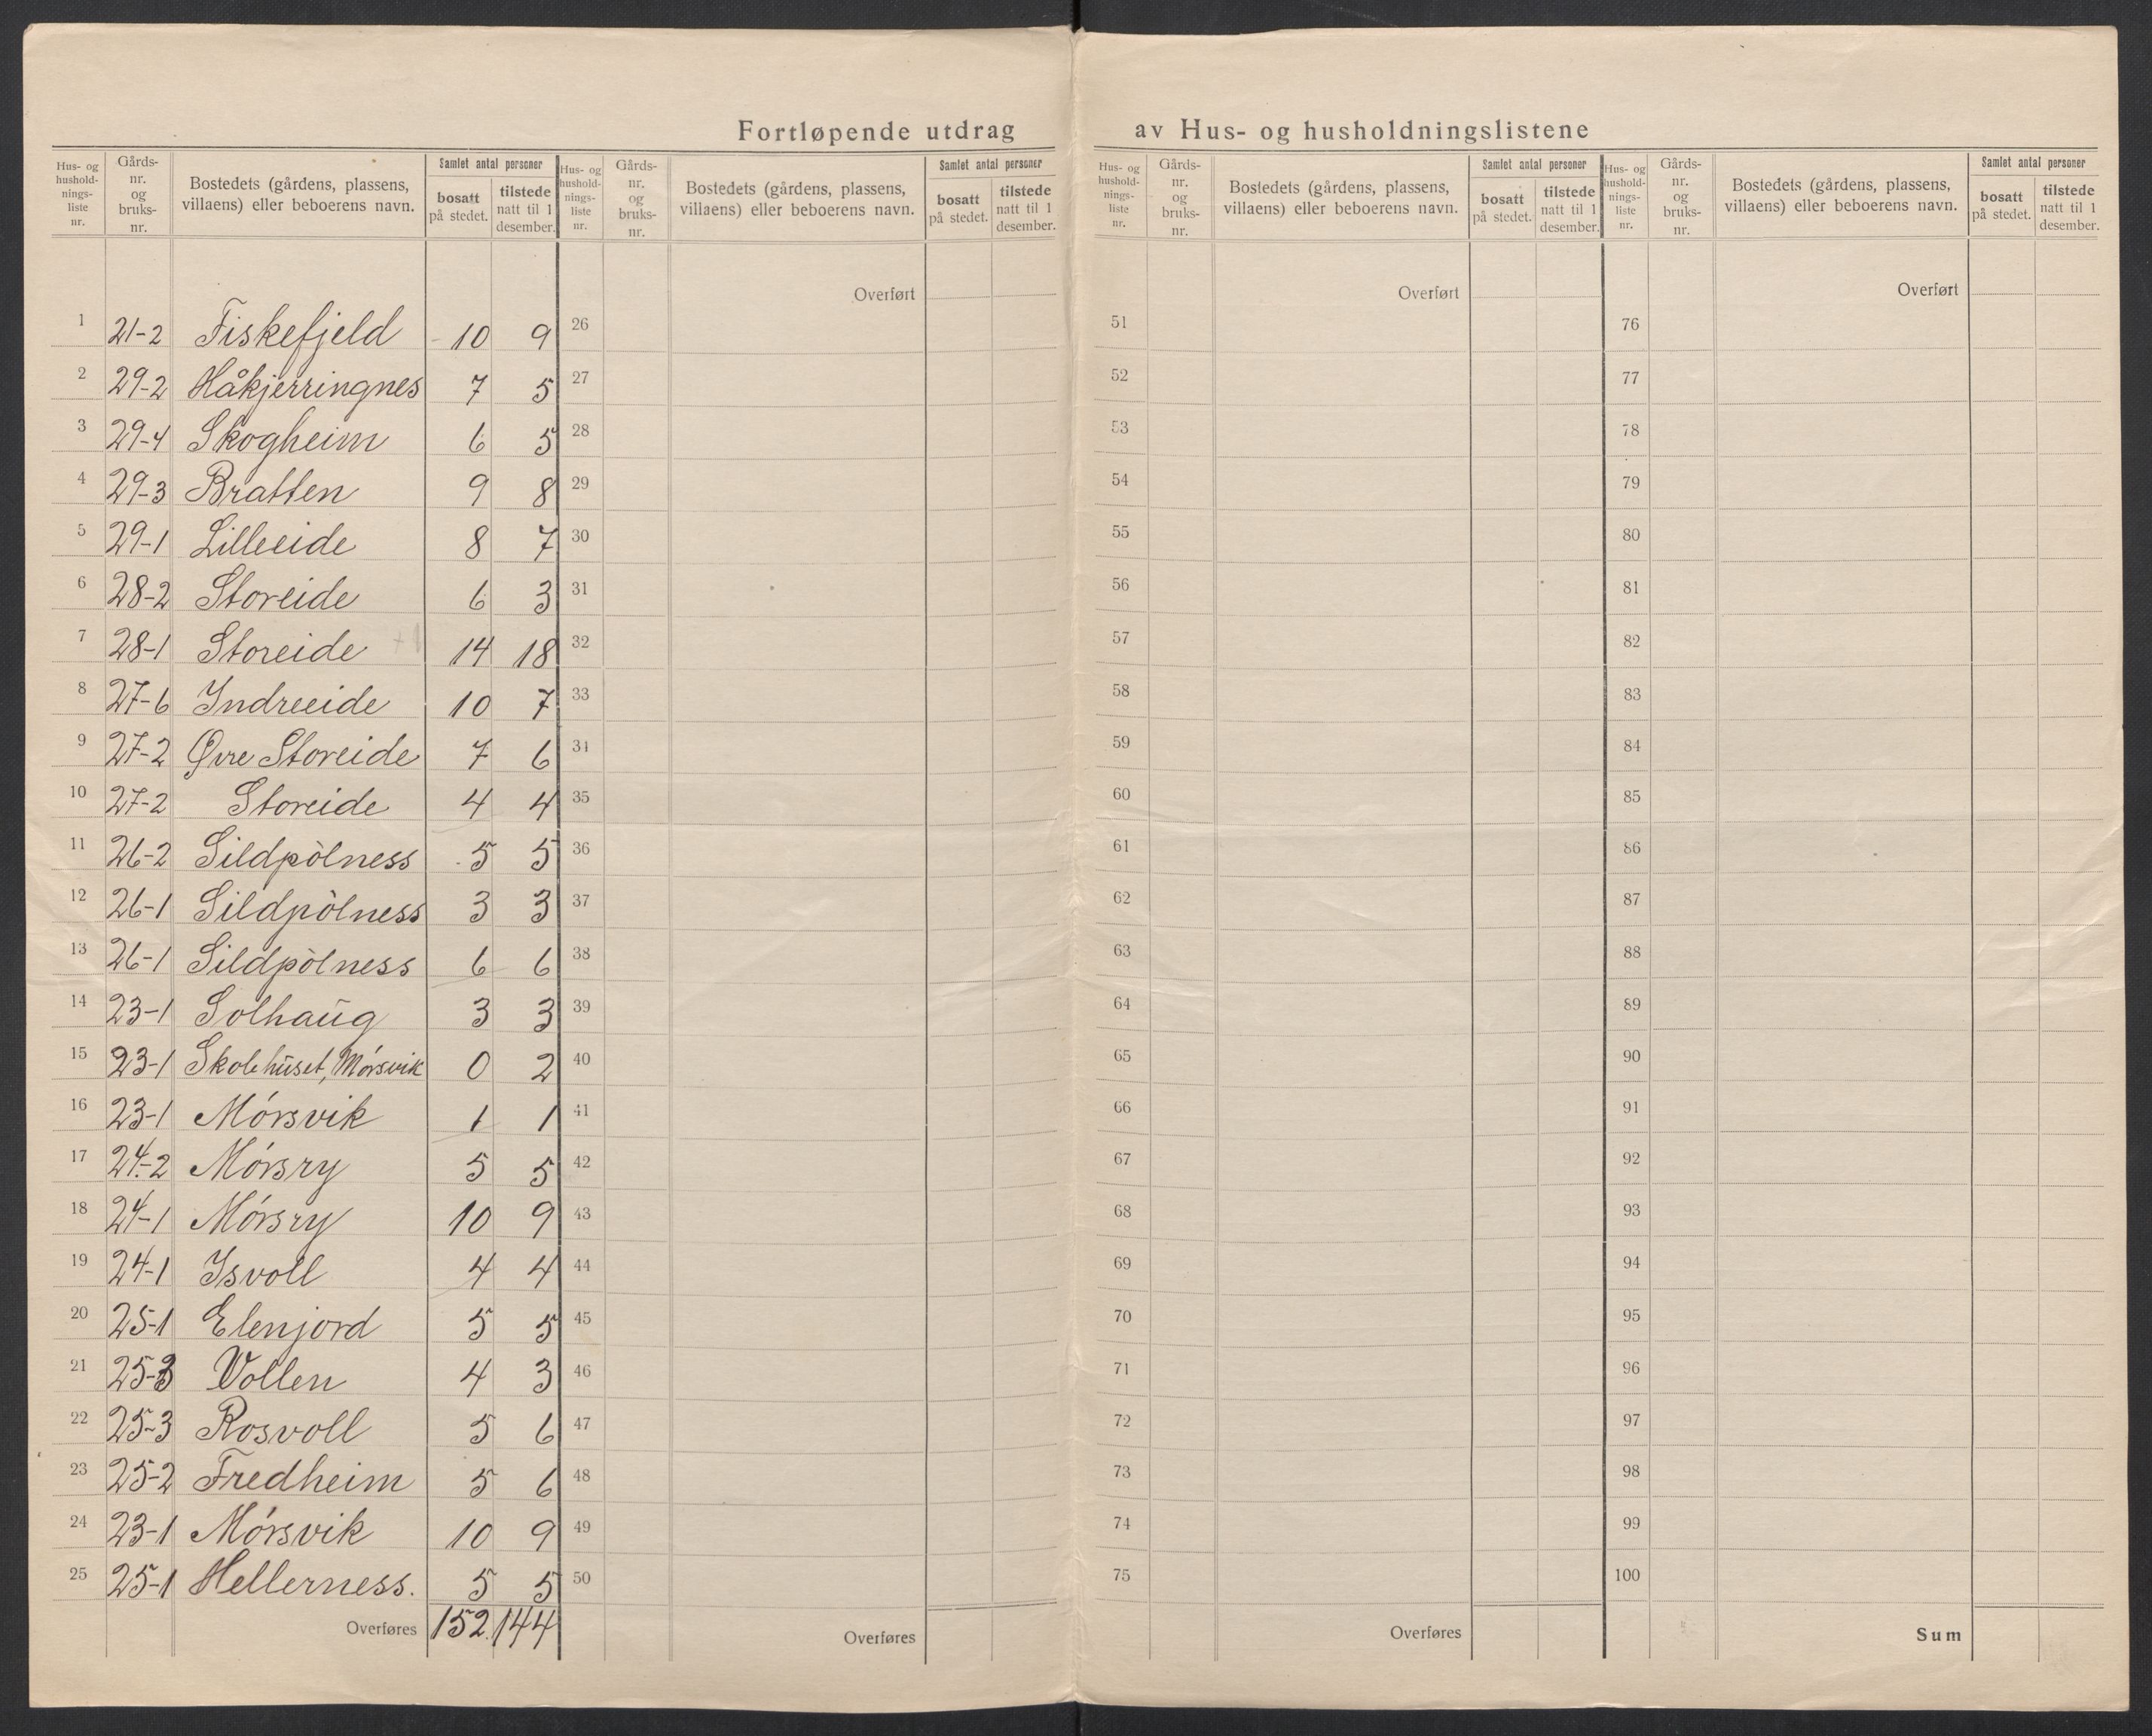 Fortløpende utdrag av Hus- og husholdningslistene
Hus- og hushold-nings-liste nr. | Gårds-nr. og bruks-nr. | Bostedets (gårdens, plassens, villaens) eller beboerens navn. | Samlet antal personer | bosatt på stedet. | tilstede natt til 1 desember.
1 21-2 Fiskefjeld 10 9
2 29-2 Håkjerringnes 7 5
3 29-4 Skogheim 6 5
4 29-3 Bratten 9 8
5 29-1 Lilleeide 8 7
6 28-2 Storeide 6 3
7 28-1 Storeide 14 18
8 27-6 Indreeide 10 7
9 27-2 Øvre Storeide 7 6
10 27-2 Storeide 4 4
11 26-2 Sildpòlness 5 5
12 26-1 Sildpòlness 3 3
13 26-1 Sildpòlness 6 6
14 23-1 Solhaug 3 3
15 23-1 Skolehuset, Mórsvik 0 2
16 23-1 Mórsvik 1 1
17 24-2 Mórsry 5 5
18 24-1 Mórsry 10 9
19 24-1 Isvoll 4 4
20 25-1 Elenjord 5 5
21 25-3 Vollen 4 3
22 25-3 Rosvoll 5 6
23 25-2 Fredheim 5 6
24 23-1 Mórsvik 10 9
25 25-1 Hellerness. 5 5
Overføres 152. 144
Hus- og hushold-nings-liste nr. | Gårds-nr. og bruks-nr. | Bostedets (gårdens, plassens, villaens) eller beboerens navn. | Samlet antal personer | bosatt på stedet. | tilstede natt til 1 desember.
Overført
26
27
28
29
30
31
32
33
34
35
36
37
38
39
40
41
42
43
44
45
46
47
48
49
50
Overføres
Hus- og hushold-nings-liste nr. | Gårds-nr. og bruks-nr. | Bostedets (gårdens, plassens, villaens) eller beboerens navn. | Samlet antal personer | bosatt på stedet. | tilstede natt til 1 desember.
Overført
51
52
53
54
55
56
57
58
59
60
61
62
63
64
65
66
67
68
69
70
71
72
73
74
75
Overføres
Hus- og hushold-nings-liste nr. | Gårds-nr. og bruks-nr. | Bostedets (gårdens, plassens, villaens) eller beboerens navn. | Samlet antal personer | bosatt på stedet. | tilstede natt til 1 desember.
Overført
76
77
78
79
80
81
82
83
84
85
86
87
88
89
90
91
92
93
94
95
96
97
98
99
100
Sum